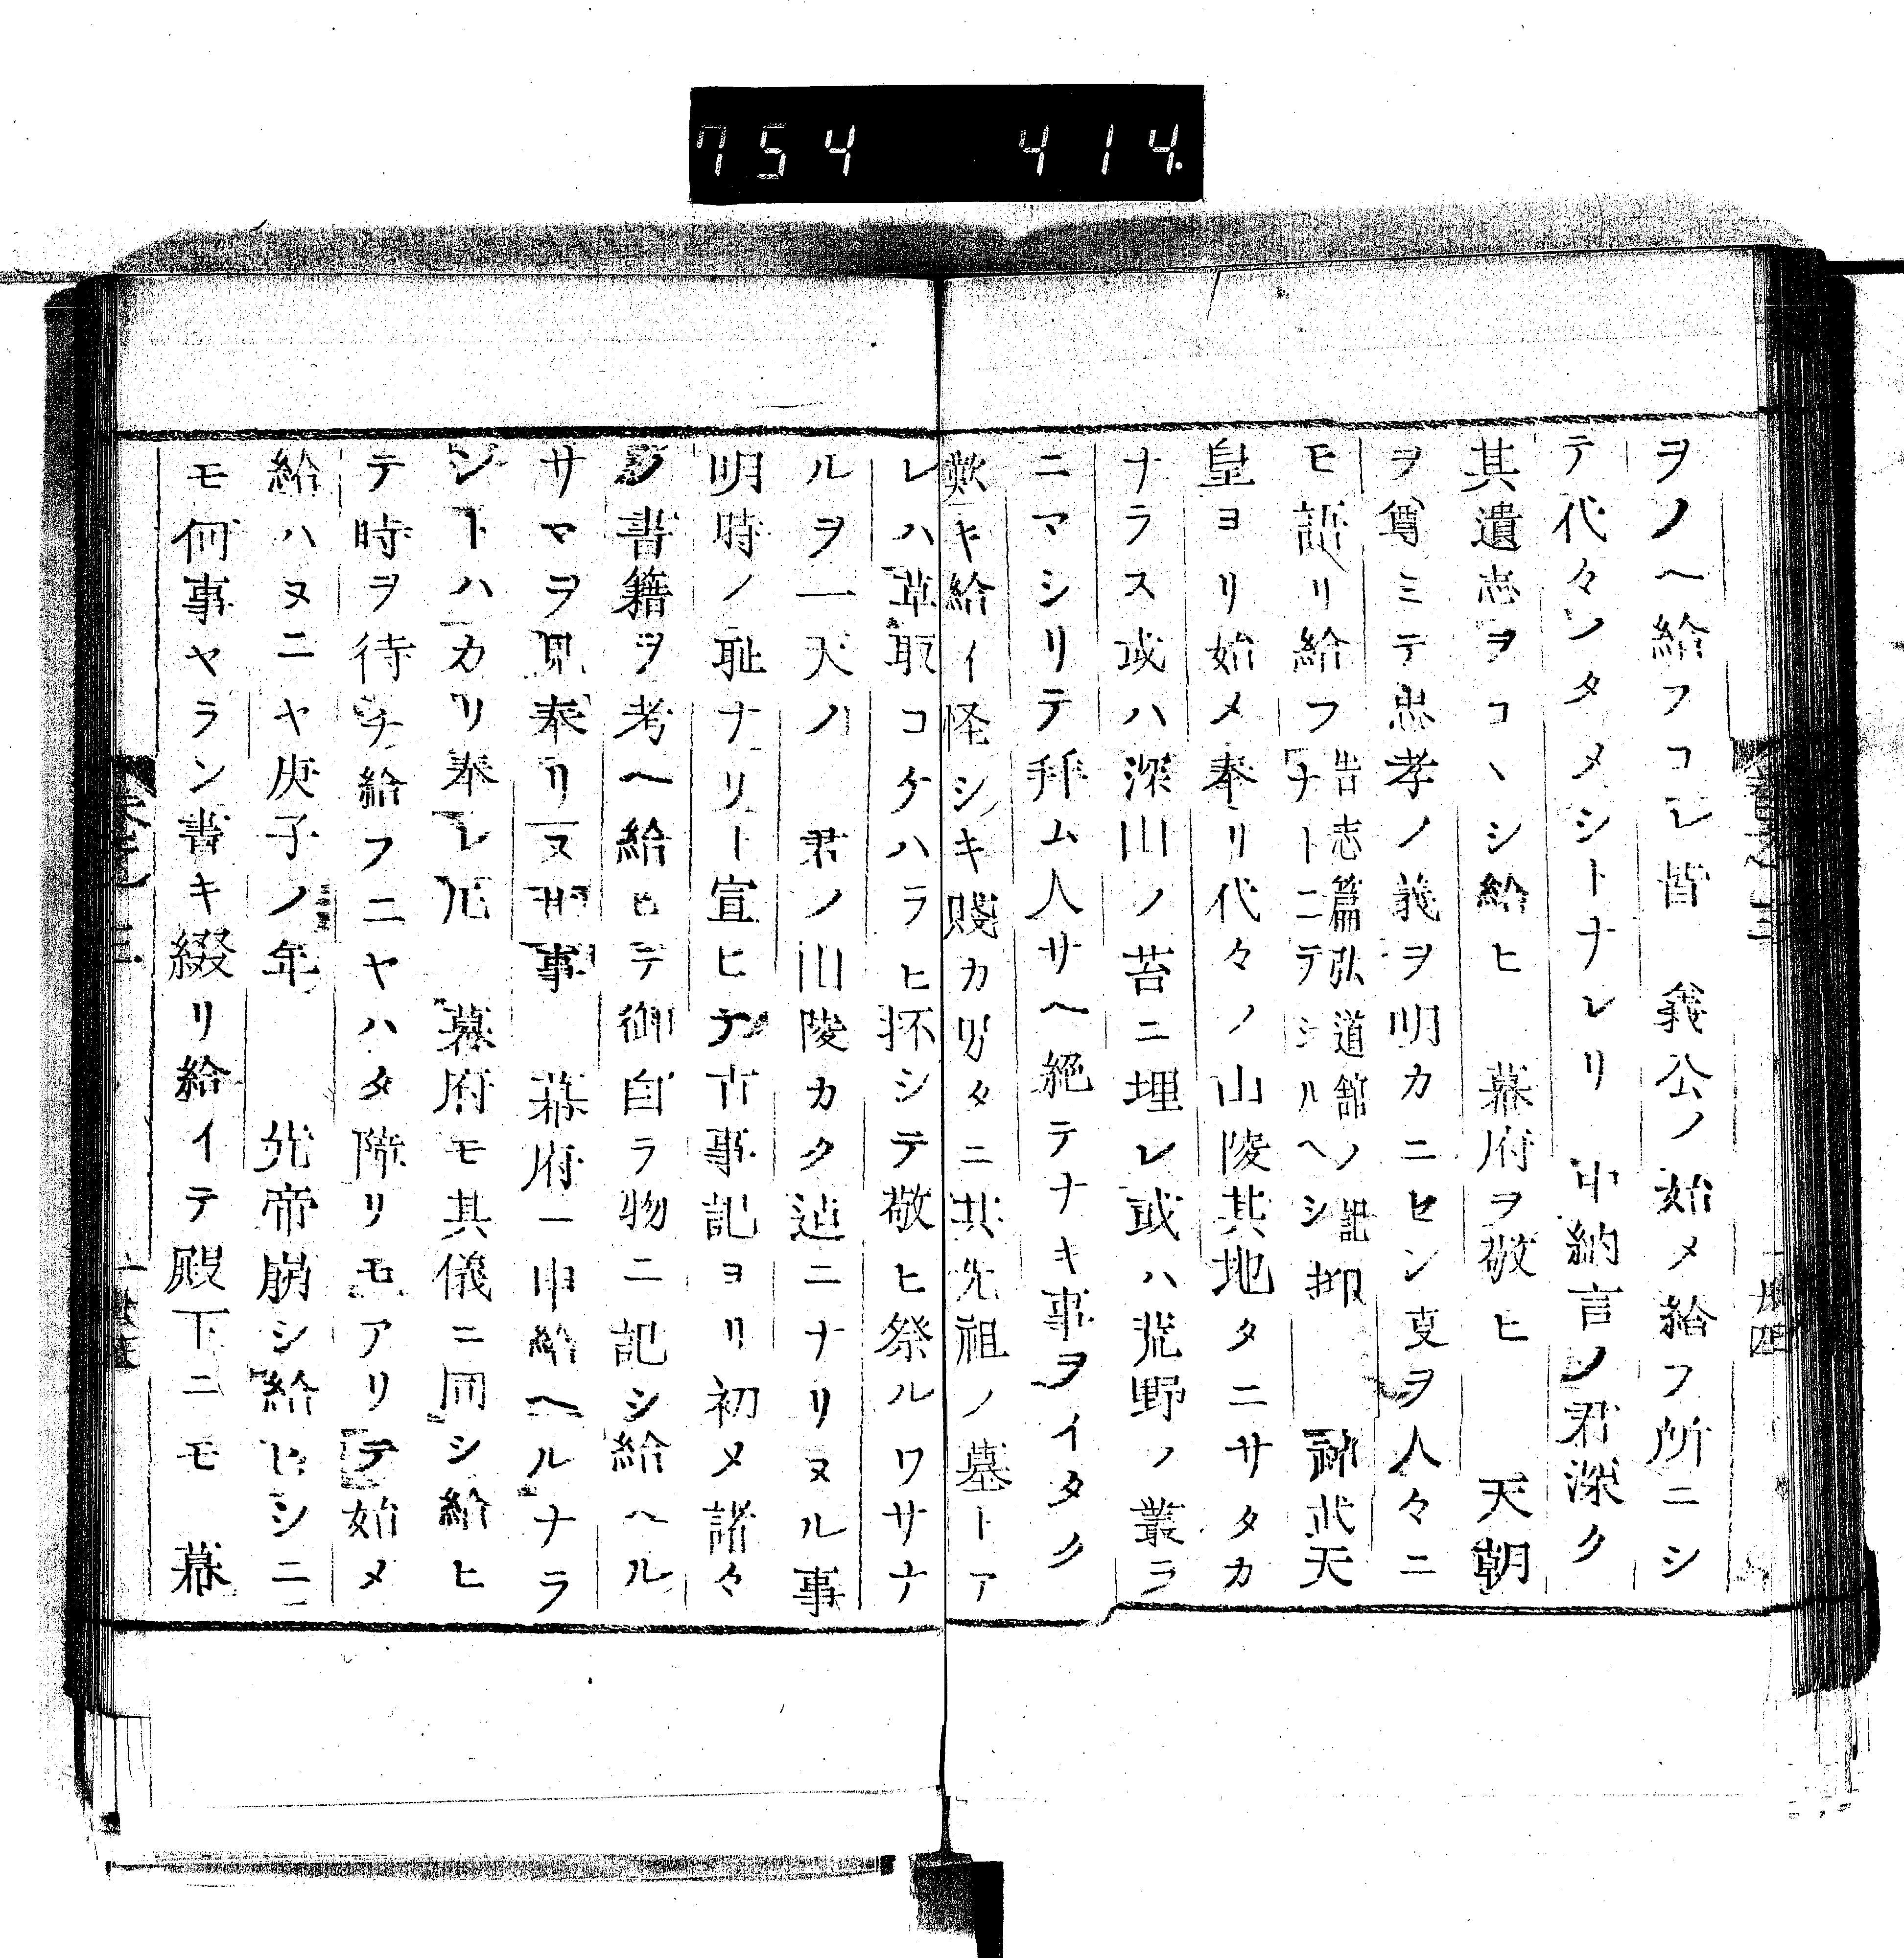 754 414.
ヲノヘ給フコレ皆 義公ノ始メ給フ所ニシ
テ代々ソノタメシトナレリ 中納言ノ君深ク
其遺志ヲコヽシ給ヒ 幕府ヲ敬ヒ 天朝
ヲ尊ミテ忠孝ノ義ヲ明カニセン叓ヲ人々ニ
モ語リ給フ
告志篇弘道館ノ記
ナトニテシルヘシ
抑 神武天
皇ヨリ始メ奉リ代々ノ山陵其地タニサタカ
ナラス或ハ深山ノ苔ニ埋レ或ハ荒野ノ叢ラ
ニマシリテ拜ム人サヘ絶テナキ事ヲイタク
歎キ給イ怪シキ賤カ男タニ其先祖ノ墓トア
レハ草取コケハラヒ抔シテ敬ヒ祭ルワサナ
ルヲ一天ノ 君ノ山陵カク迠ニナリヌル事
明時ノ耻ナリト宣ヒテ古事記ヨリ初メ諸々
ノ書籍ヲ考ヘ給ヒテ御自ラ物ニ記シ給ヘル
サマヲ見奉リヌ 事 幕府ニ申給ヘルナラ
ントハカリ奉レ𪜈 幕府モ其儀ニ同シ給ヒ
テ時ヲ待チ給フニヤハタ障リモアリテ始メ
給ハヌニヤ庚子ノ年 先帝崩シ給ヒシニ
モ何事ヤラン書キ綴リ給イテ殿下ニモ 幕